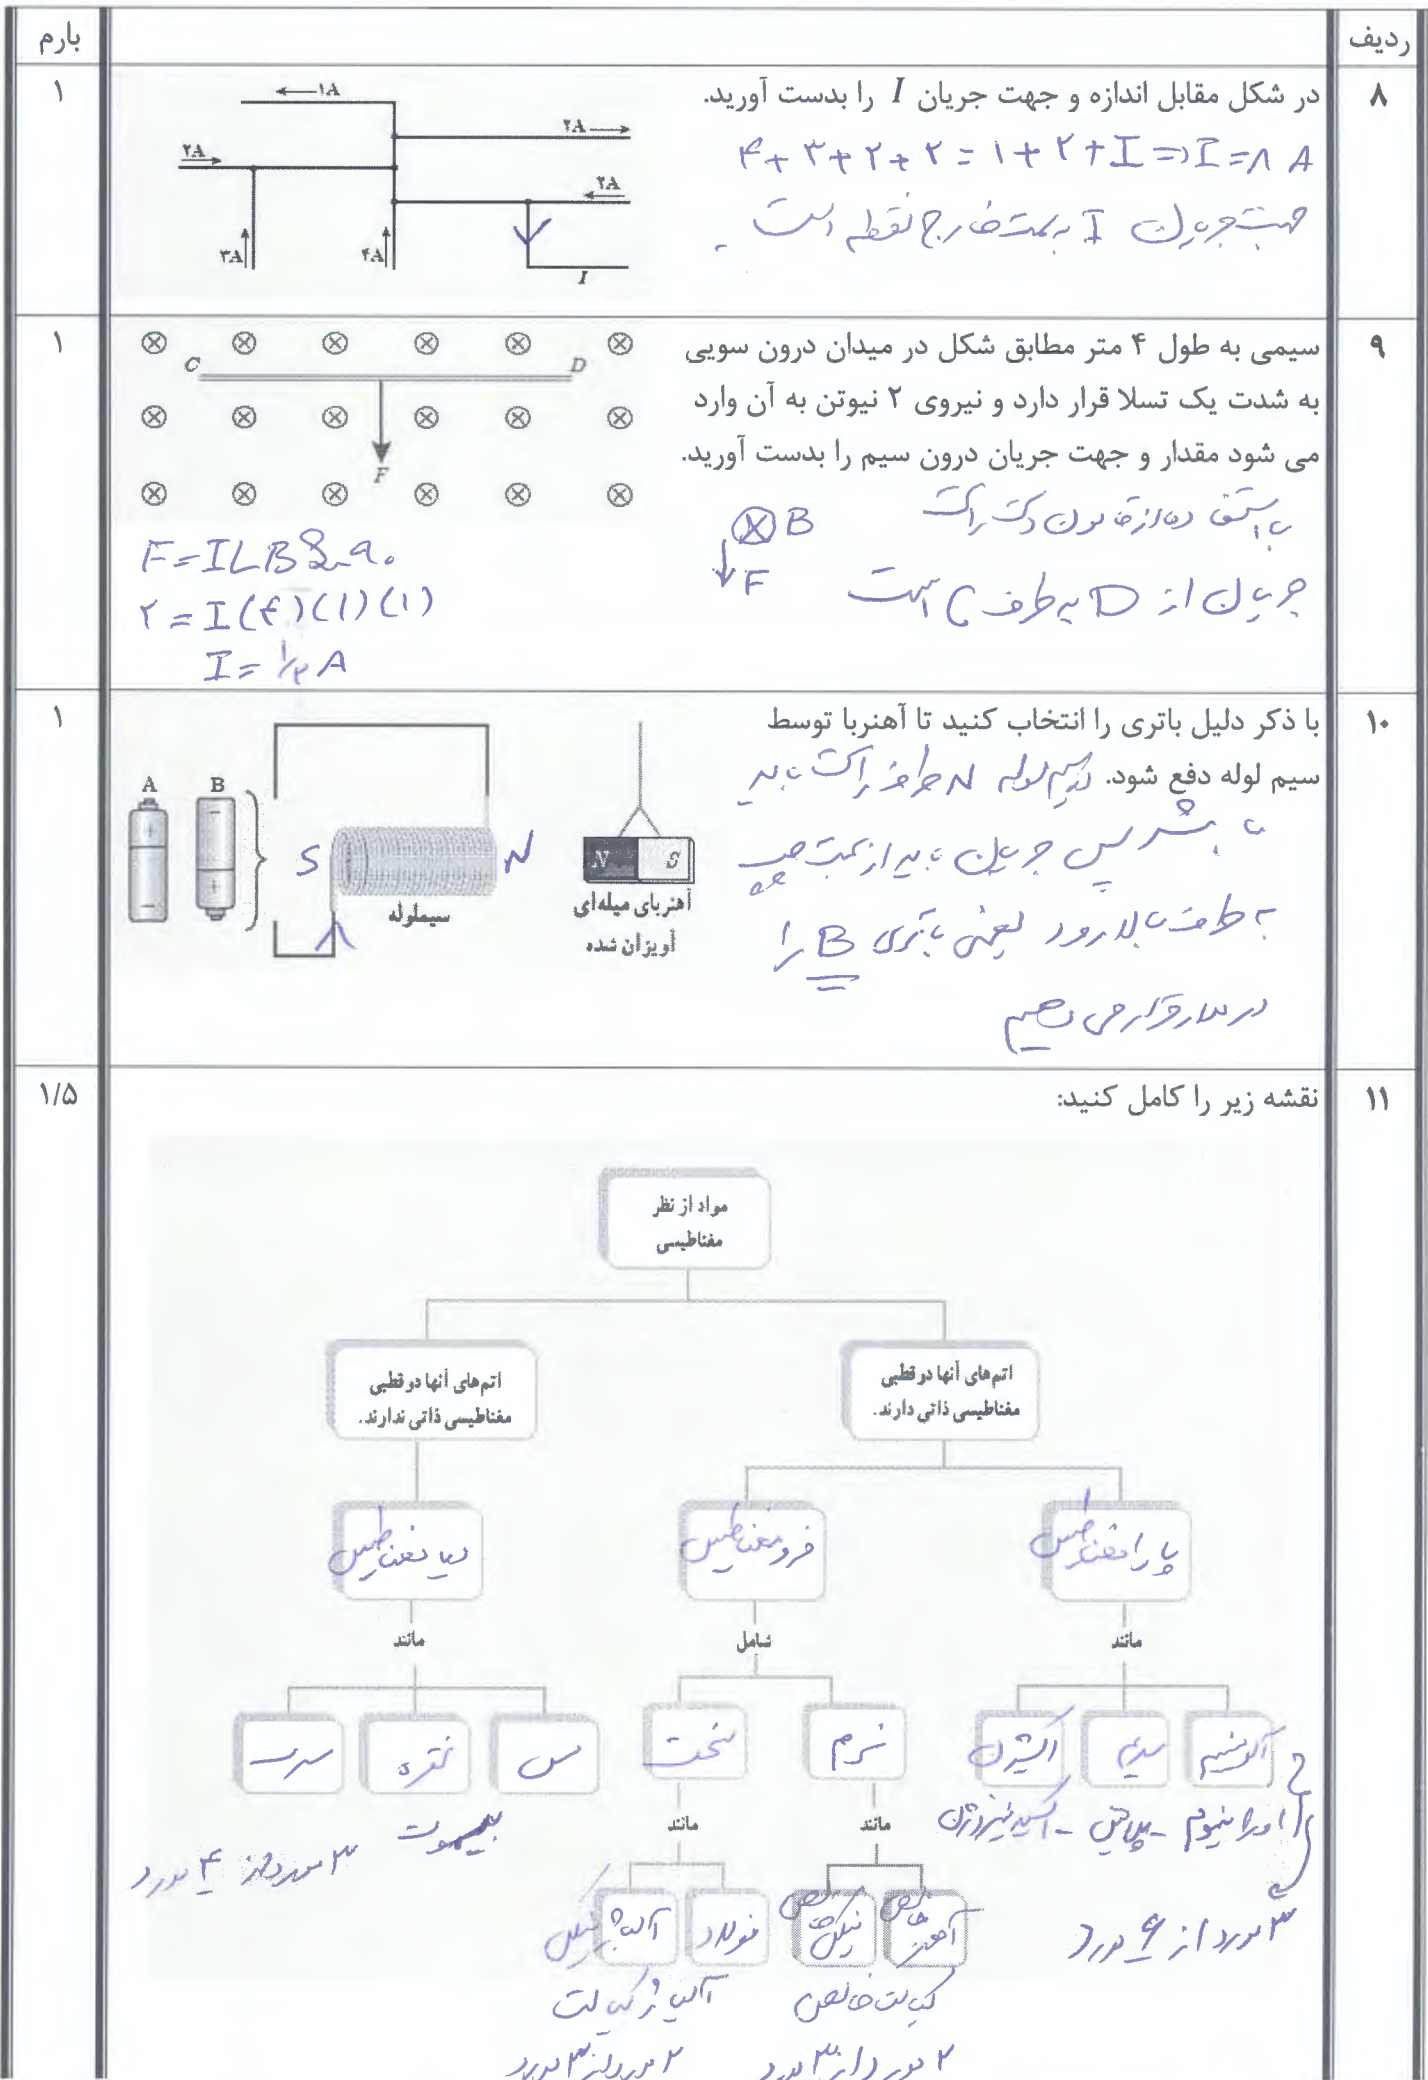 ردیف
بارم
۸
در شکل مقابل اندازه و جهت جریان I را بدست آورید.
۱
۴+۳+۲+۲=۱+۲+I => I=۸ A
جهت جریان I به سمت خارج نقطه است.
۱A
۲A
۲A
۲A
۳A
۴A
I
۹
سیمی به طول ۴ متر مطابق شکل در میدان درون سویی
به شدت یک تسلا قرار دارد و نیروی ۲ نیوتن به آن وارد
می شود مقدار و جهت جریان درون سیم را بدست آورید.
۱
با استفاده از قانون دست راست
جریان از D به طرف C است
B
F
C
D
F
F=ILB Sin ۹۰
۲=I(۴)(۱)(۱)
I=۱/۲ A
۱۰
با ذکر دلیل باتری را انتخاب کنید تا آهنربا توسط
سیم لوله دفع شود. سیم لوله N طرف راست باید
باشد پس جریان باید از سمت چپ
به طرف بالا رود یعنی باتری B را
در مدار قرار می دهیم
۱
A
B
S
N
سیملوله
N
S
آهنربای میله‌ای
آویزان شده
۱۱
نقشه زیر را کامل کنید:
۱/۵
مواد از نظر
مغناطیسی
اتم‌های آنها دو قطبی
مغناطیسی ذاتی دارند.
اتم‌های آنها دو قطبی
مغناطیسی ذاتی ندارند.
پارامغناطیس
فرومغناطیس
دیامغناطیس
مانند
شامل
مانند
آلومینیم
سدیم
اکسیژن
نرم
سخت
مس
نقره
سرب
اورانیوم - پلاتین - اکسید نیتروژن
بیسموت
۳ مورد از ۴ مورد
مانند
مانند
آهن خالص
نیکل خالص
فولاد
آلیاژ نیکل
۳ مورد از ۶ مورد
کبالت خالص
آلیاژ کبالت
۲ مورد از ۳ مورد
۲ مورد از ۳ مورد